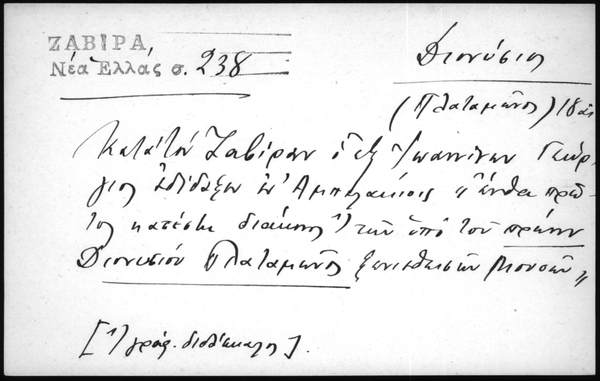 ΖΑΒΙΡΑ,
Νέα Ἑλλας σ. 238
Διονύσιος
(Πλαταμῶνος) 18 αι
Κατὰ τὸν Ζαβίραν ὁ ἐξ Ἰωαννίνων Γεώρ-
γιος ἐδίδαξεν ἐν Ἀμπελακίοις "ἔνθα πρῶ-
τος κατέστη διάκονος 1) τῶν ὑπὸ τοῦ πρώην
Διονυσίου Πλαταμῶνος Μουσῶν"
[1) γράφ. διδάσκαλος].